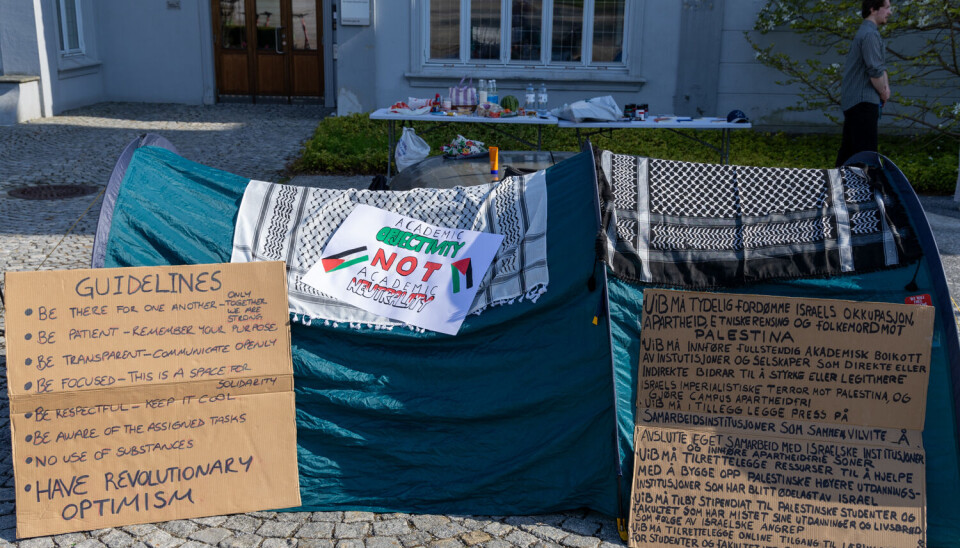 GUIDELINES
• BE THERE FOR ONE ANOTHER – ONLY TOGETHER WE ARE STRONG
• BE PATIENT – REMEMBER YOUR PURPOSE
• BE TRANSPARENT – COMMUNICATE OPENLY
• BE FOCUSED – THIS IS A SPACE FOR
SOLIDARITY
• BE RESPECTFUL – KEEP IT COOL
• BE AWARE OF THE ASSIGNED TASKS
• NO USE OF SUBSTANCES
• HAVE REVOLUTIONARY
OPTIMISM
ACADEMIC
OBJECTIVITY
NOT
ACADEMIC
NEUTRALITY
• UiB MÅ TYDELIG FORDØMME ISRAELS OKKUPASJON,
APARTHEID, ETNISK RENSING OG FOLKEMORD MOT
PALESTINA
• UiB MÅ INNFØRE FULLSTENDIG AKADEMISK BOIKOTT
AV INSTUTISJONER OG SELSKAPER SOM DIREKTE ELLER
INDIREKTE BIDRAR TIL Å STYRKE ELLER LEGITIMERE
ISRAELS IMPERIALISTISKE TERROR MOT PALESTINA, OG
GJØRE CAMPUS APARTHEIDFRI
• UiB MÅ I TILLEGG LEGGE PRESS PÅ
SAMARBEIDSINSTITUSJONER SOM SAMMEN VIL Å
AVSLUTTE EGET SAMARBEID MED ISRAELSKE INSTITUSJONER
OG INNFØRE APARTHEIDFRIE SONER
UiB MÅ TILRETTELEGGE RESSURSER TIL Å HJELPE
MED Å BYGGE OPP PALESTINSKE HØYERE UTDANNINGS-
INSTITUSJONER SOM HAR BLITT ØDELAGT AV ISRAEL
UiB MÅ TILBY STIPENDIAT TIL PALESTINSKE STUDENTER OG
FAKULTET SOM HAR MISTET SINE UTDANNINGER OG LIVSBRØD
SOM FØLGE AV ISRAELSKE ANGREP
UiB MÅ TILRETTELEGGE ONLINE TILGANG TIL
FOR STUDENTER OG FAKULTET